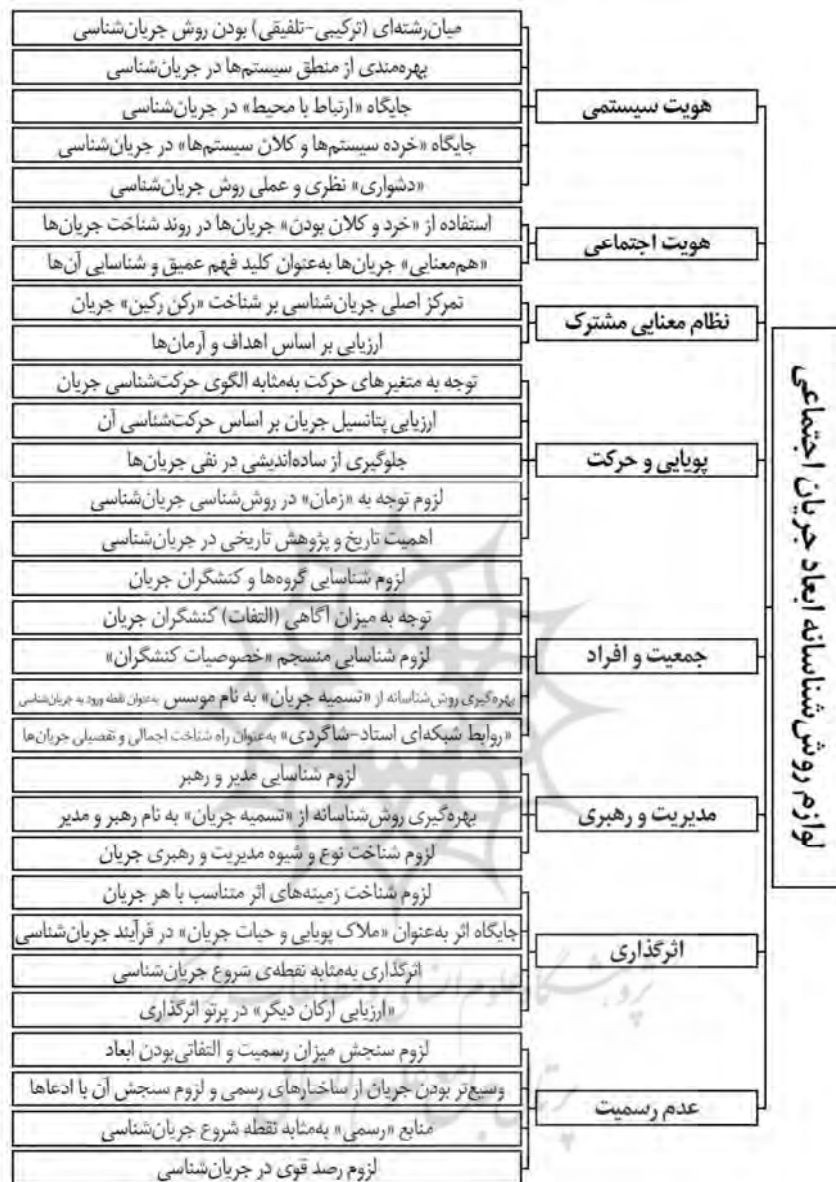 لوازم روش‌شناسانه ابعاد جریان اجتماعی
هویت سیستمی
میان‌رشته‌ای (ترکیبی-تلفیقی) بودن روش جریان‌شناسی
بهره‌مندی از منطق سیستم‌ها در جریان‌شناسی
جایگاه «ارتباط با محیط» در جریان‌شناسی
جایگاه «خرده سیستم‌ها و کلان سیستم‌ها» در جریان‌شناسی
«دشواری» نظری و عملی روش جریان‌شناسی
هویت اجتماعی
استفاده از «خرد و کلان بودن» جریان‌ها در روند شناخت جریان‌ها
«هم‌معنایی» جریان‌ها به‌عنوان کلید فهم عمیق و شناسایی آن‌ها
نظام معنایی مشترک
تمرکز اصلی جریان‌شناسی بر شناخت «رکن رکین» جریان
ارزیابی بر اساس اهداف و آرمان‌ها
پویایی و حرکت
توجه به متغیرهای حرکت به‌مثابه الگوی حرکت‌شناسی جریان
ارزیابی پتانسیل جریان بر اساس حرکت‌شناسی آن
جلوگیری از ساده‌اندیشی در نفی جریان‌ها
لزوم توجه به «زمان» در روش‌شناسی جریان‌شناسی
اهمیت تاریخ و پژوهش تاریخی در جریان‌شناسی
جمعیت و افراد
لزوم شناسایی گروه‌ها و کنشگران جریان
توجه به میزان آگاهی (التفات) کنشگران جریان
لزوم شناسایی منسجم «خصوصیات کنشگران»
بهره‌گیری روش‌شناسانه از «تسمیه جریان» به نام موسس به‌عنوان نقطه ورود به جریان‌شناسی
«روابط شبکه‌ای استاد-شاگردی» به‌عنوان راه شناخت اجمالی و تفصیلی جریان‌ها
مدیریت و رهبری
لزوم شناسایی مدیر و رهبر
بهره‌گیری روش‌شناسانه از «تسمیه جریان» به نام رهبر و مدیر
لزوم شناخت نوع و شیوه مدیریت و رهبری جریان
اثرگذاری
لزوم شناخت زمینه‌های اثر متناسب با هر جریان
جایگاه اثر به‌عنوان «ملاک پویایی و حیات جریان» در فرآیند جریان‌شناسی
اثرگذاری به‌مثابه نقطه‌ی شروع جریان‌شناسی
«ارزیابی ارکان دیگر» در پرتو اثرگذاری
عدم رسمیت
لزوم سنجش میزان رسمیت و التفاتی‌بودن ابعاد
وسیع‌تر بودن جریان از ساختارهای رسمی و لزوم سنجش آن با ادعاها
منابع «رسمی» به‌مثابه نقطه شروع جریان‌شناسی
لزوم رصد قوی در جریان‌شناسی